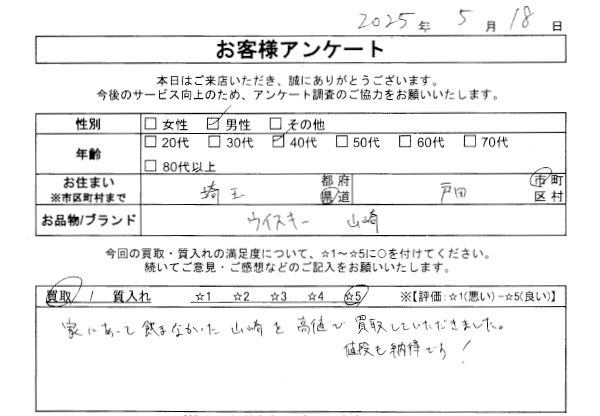 2025年 5月 18日
お客様アンケート
本日はご来店いただき、誠にありがとうございます。
今後のサービス向上のため、アンケート調査のご協力をお願いいたします。
性別 □女性 ☑男性 □その他
年齢 □20代 □30代 ☑40代 □50代 □60代 □70代
□80代以上
お住まい ※市区町村まで 埼玉 都府県道 戸田 市町区村
お品物/ブランド ウイスキー 山崎
今回の買取・質入れの満足度について、☆1～☆5に○を付けてください。
続いてご意見・ご感想などのご記入をお願いいたします。
買取 / 質入れ ☆1 ☆2 ☆3 ☆4 ☆5 ※【評価:☆1(悪い)-☆5(良い)】
家にあって飲まなかった山崎を高値で買取していただきました。
値段も納得です!